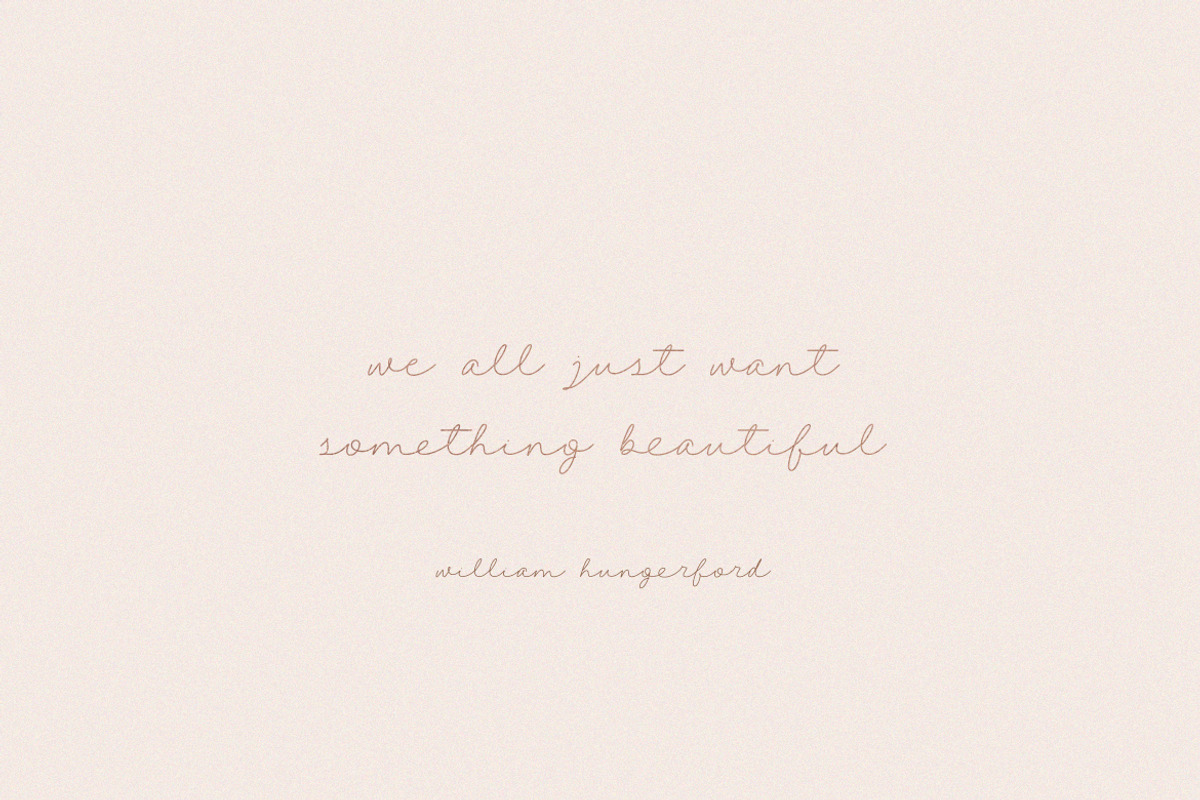 we all just want
something beautiful
william hungerford